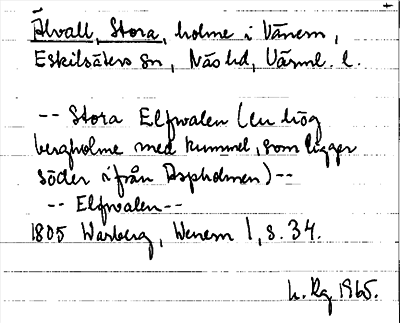 Älvall, Stora, holme i Vänern,
Eskilsäters sn, Näs hd, Värml. l.
-- Stora Elfwalen (en hög
bergholme med kummel, som ligger
söder ifrån Aspholmen) --
-- Elfwalen --
1805 Warberg, Wenern 1, s. 34.
h. Rg 1965.